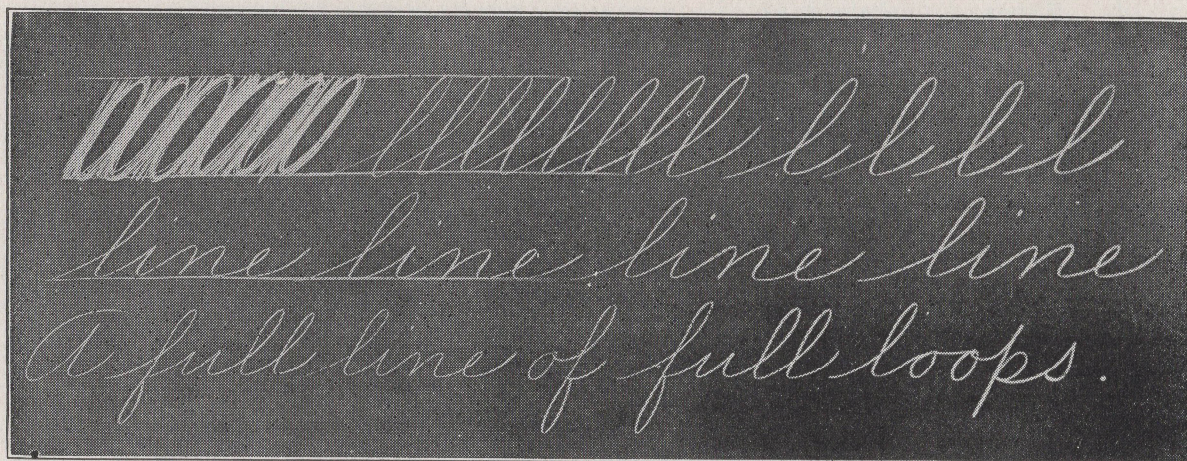 llllllll l l l l
line line line line
A full line of full loops.